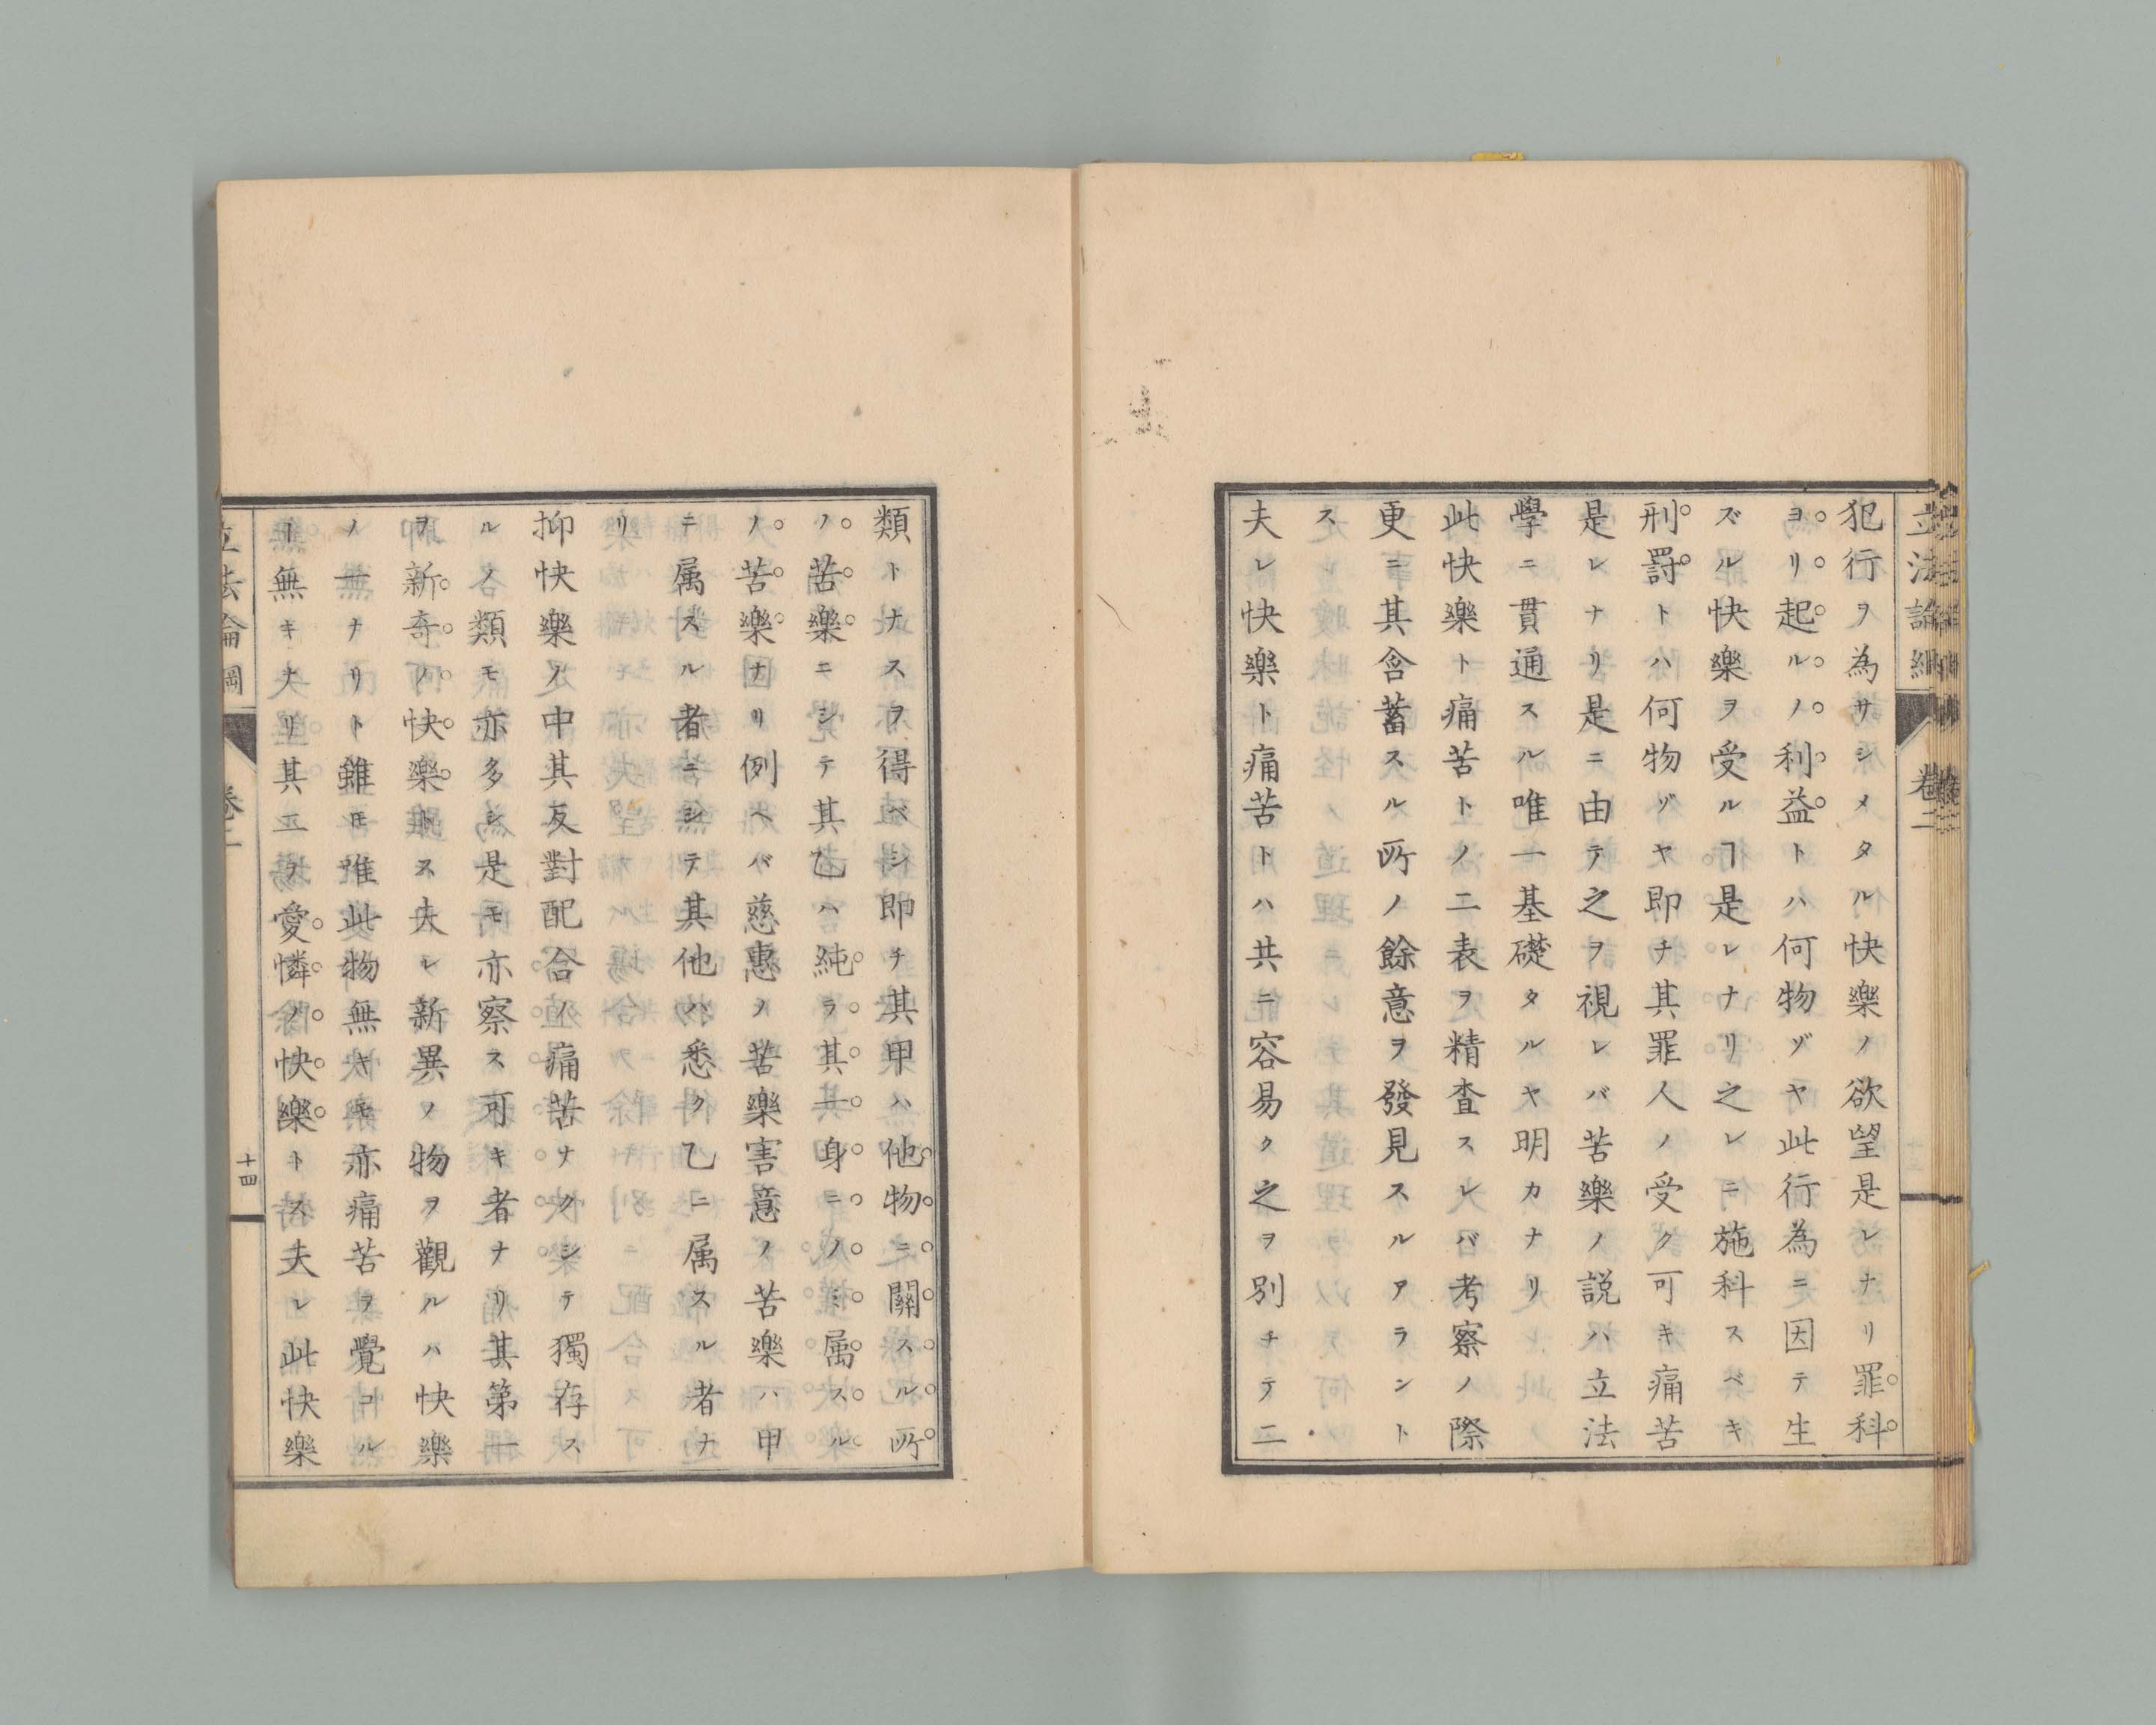 犯行ヲ為サシメタル快樂ノ欲望是レナリ罪科
ヨリ起ルノ利益トハ何物ゾヤ此行為ニ因テ生
ズル快樂ヲ受ルヿ是レナリ之レニ施科スベキ
刑罰トハ何物ゾヤ即チ其罪人ノ受ク可キ痛苦
是レナリ是ニ由テ之ヲ視レバ苦樂ノ説ハ立法
學ニ貫通スル唯一基礎タルヤ明カナリ
此快樂ト痛苦トノ二表ヲ精査スレバ考察ノ際
更ニ其含蓄スル所ノ餘意ヲ發見スルアラント
ス
夫レ快樂ト痛苦トハ共ニ容易ク之ヲ別チテ二
立法論綱
卷二
類トナスヲ得ベシ即チ其甲ハ他物ニ關スル所
ノ苦樂ニシテ其乙ハ純ラ其一身ニノミ属スル
ノ苦樂ナリ例ヘバ慈惠ノ苦樂害意ノ苦樂ハ甲
ニ属スル者ニシテ其他ハ悉ク乙ニ属スル者ナ
リ
抑快樂ノ中其反對配合ノ痛苦ナクシテ獨存ス
ルノ類モ亦多シ是モ亦察ス可キ者ナリ其第一
ヲ新奇ノ快樂トス夫レ新異ノ物ヲ觀ルハ快樂
ノ一ナリト雖モ惟此物無キモ亦痛苦ヲ覺ユル
ヿ無キナリ其二ヲ愛憐ノ快樂トス夫レ此快樂
立法論綱
卷二
十四